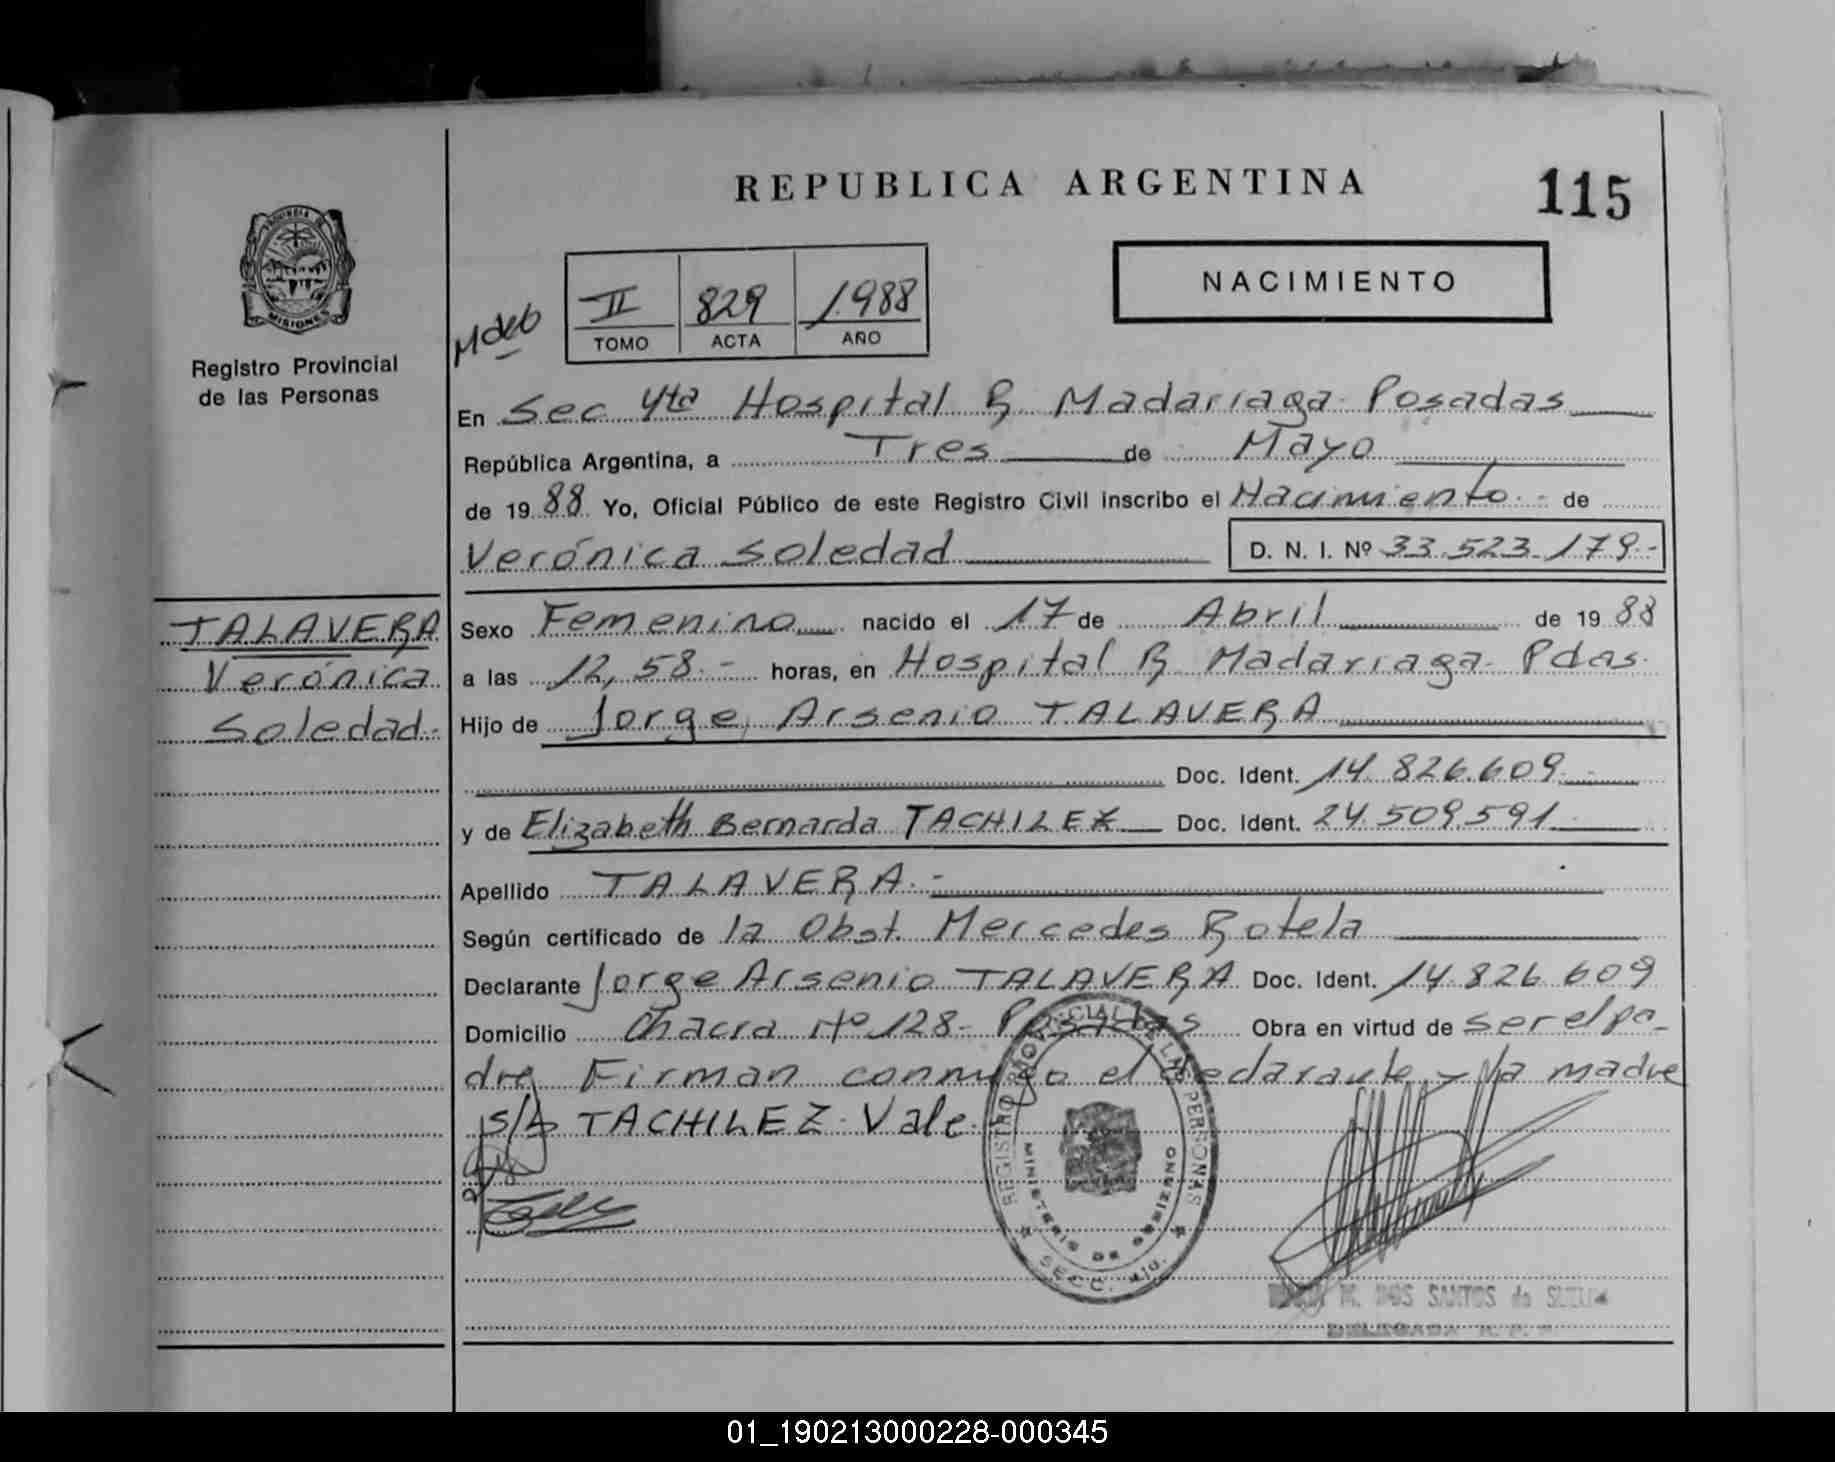 REPUBLICA ARGENTINA
115
NACIMIENTO
PROVINCIA DE
MISIONES
Registro Provincial
de las Personas
II 829 1.988
TOMO ACTA AÑO
En Sec 4ta Hospital R Madariaga Posadas
República Argentina, a Tres de Mayo
de 1988 Yo, Oficial Público de este Registro Civil inscribo el Nacimiento.- de
Verónica Soledad D. N. I. Nº 33.523.179.-
TALAVERA
Verónica
Soledad.-
Sexo Femenino nacido el 17 de Abril de 1988
a las 12,58.- horas, en Hospital R Madariaga- Pdas.
Hijo de Jorge Arsenio TALAVERA
Doc. Ident. 14.826.609.-
y de Elizabeth Bernarda TACHILEZ Doc. Ident. 24.509.591
Apellido TALAVERA.-
Según certificado de la Obst. Mercedes Rotela
Declarante Jorge Arsenio TALAVERA Doc. Ident. 14.826.609
Domicilio Chacra Nº 128- Posadas Obra en virtud de ser el pa-
dre Firman conmigo el declarante y la madre
s/b TACHILEZ. Vale.
REGISTRO PROVINCIAL DE LAS PERSONAS
MINISTERIO DE GOBIERNO
SECC. 4ta.
M. DOS SANTOS de
DELEGADA R. P. P.
01_190213000228-000345